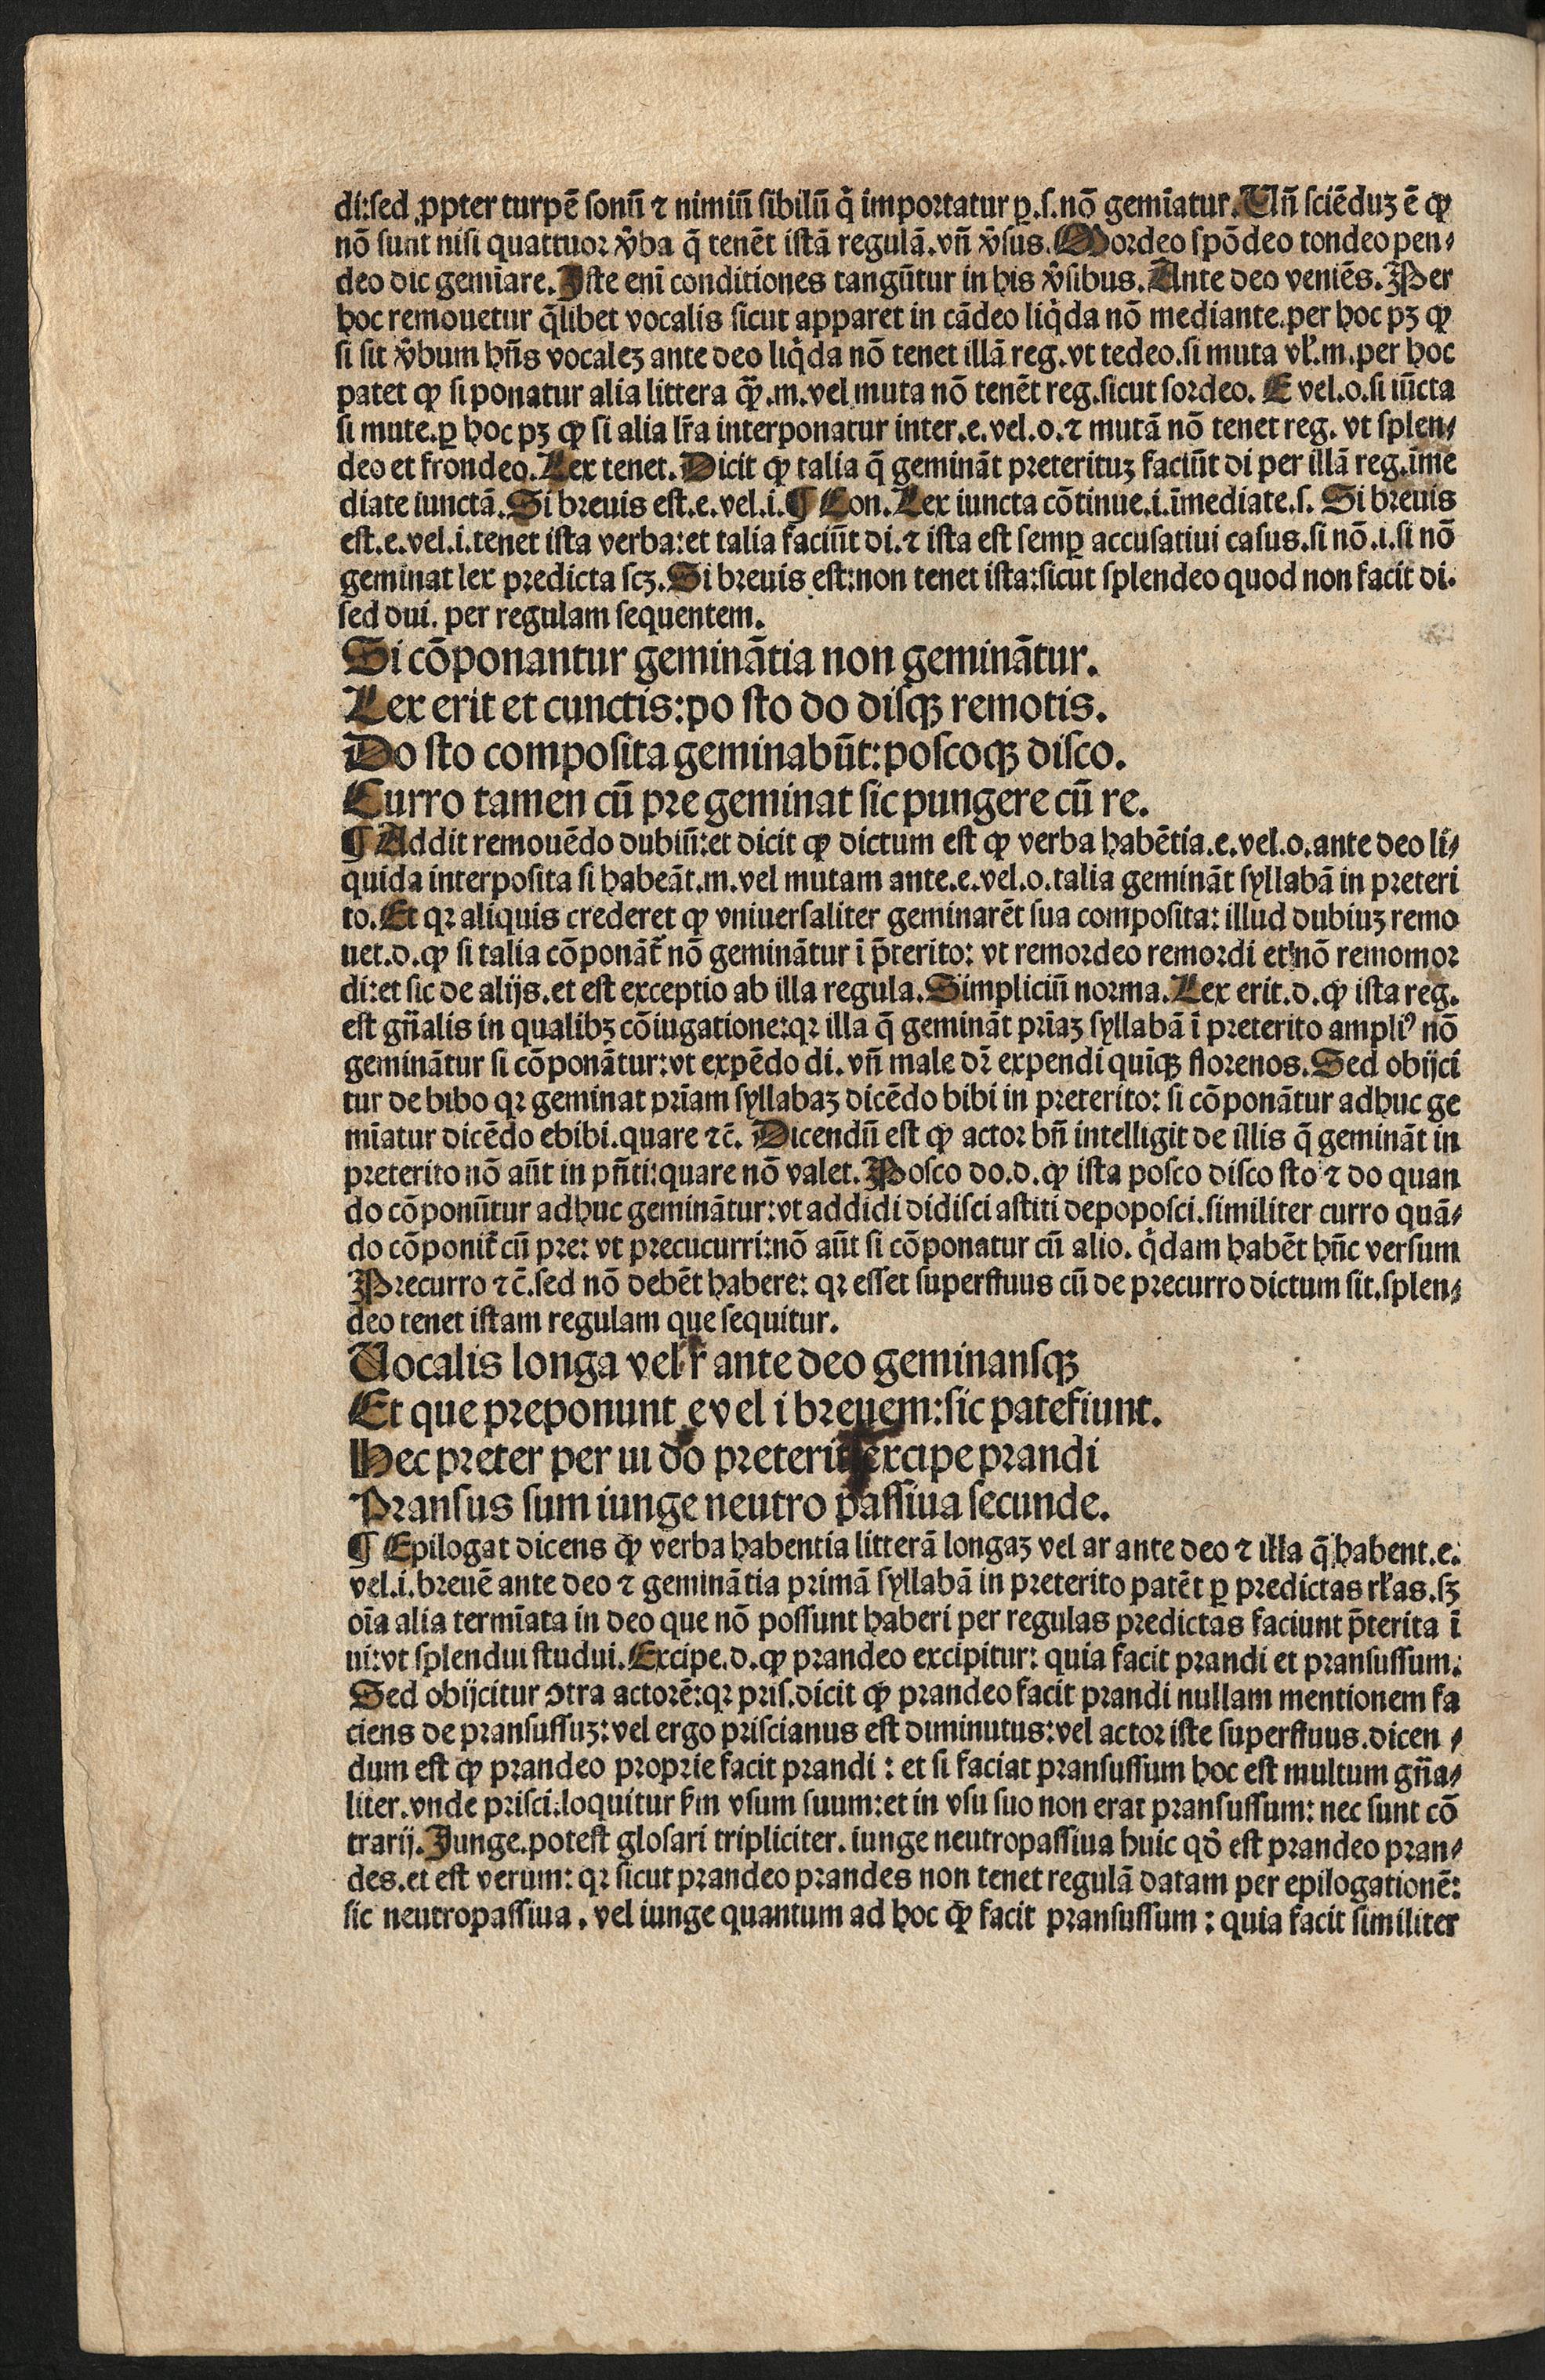 di:sed ꝓpter turpē sonū ⁊ nimiū sibilū q̇ importatur ꝑ.s.nō gemīatur.Un̄ sciēduꝫ ē ꝙ
nō sunt nisi quattuor v̓ba q̄ tenēt istā regulā.vn̄ v̓sus.Mordeo spōdeo tondeo pen⸗
deo dic gemīare.Iste enī conditiones tangūtur in his v̓sibus.Ante deo veniēs.Per
hoc remouetur q̄libet vocalis sicut apparet in cādeo liq̇da nō mediante.per hoc pꝫ ꝙ
si sit v̓bum hn̄s vocaleꝫ ante deo liq̇da nō tenet illā reg.vt tedeo.si muta vl̓.m.per hoc
patet ꝙ si ponatur alia littera q̄ꝫ.m.vel muta nō tenēt reg.sicut sordeo. E vel.o.si iūcta
si mute.ꝑ hoc pꝫ ꝙ si alia lr̄a interponatur inter.e.vel.o.⁊ mutā nō tenet reg. vt splen⸗
deo et frondeo.Lex tenet.Dicit ꝙ talia q̄ gemināt preterituꝫ faciūt di per illā reg.īme
diate iunctā.Si breuis est.e.vel.i.¶ Con.Lex iuncta cōtinue.i.īmediate.s. Si breuis
est.e.vel.i.tenet ista verba:et talia faciūt di.⁊ ista est semꝑ accusatiui casus.si nō.i.si nō
geminat lex predicta scꝫ.Si breuis est:non tenet ista:sicut splendeo quod non facit di.
sed dui. per regulam sequentem.
Si cōponantur geminātia non geminātur.
Lex erit et cunctis:po sto do disqꝫ remotis.
Do sto composita geminabūt:poscoqꝫ disco.
Curro tamen cū pre geminat sic pungere cū re.
¶ Addit remouēdo dubiū:et dicit ꝙ dictum est ꝙ verba habētia.e.vel.o.ante deo li⸗
quida interposita si habeāt.m.vel mutam ante.e.vel.o.talia gemināt syllabā in preteri
to.Et qꝛ aliquis crederet ꝙ vniuersaliter geminarēt sua composita: illud dubiuꝫ remo
uet.d.ꝙ si talia cōponāt̓ nō geminātur ī p̄terito: vt remordeo remordi et nō remomor
di:et sic de alijs.et est exceptio ab illa regula.Simpliciū norma.Lex erit.d.ꝙ ista reg.
est gn̄alis in qualibꝫ cōiugatione:qꝛ illa q̄ gemināt prīaꝫ syllabā ī preterito ampliꝰ nō
geminātur si cōponātur:vt expēdo di. vn̄ male dr̄ expendi quīqꝫ florenos.Sed obijci
tur de bibo qꝛ geminat prīam syllabaꝫ dicēdo bibi in preterito: si cōponātur adhuc ge
mīatur dicēdo ebibi.quare ⁊c̄. Dicendū est ꝙ actor bn̄ intelligit de illis q̄ gemināt in
preterito nō aūt in pn̄ti:quare nō valet.Posco do.d.ꝙ ista posco disco sto ⁊ do quan
do cōponūtur adhuc geminātur:vt addidi didisci astiti depoposci.similiter curro quā⸗
do cōponit̓ cū pre: vt precucurri:nō aūt si cōponatur cū alio. q̇dam habēt hūc versum
Precurro ⁊c̄.sed nō debēt habere: qꝛ esset superfluus cū de precurro dictum sit.splen⸗
deo tenet istam regulam que sequitur.
Uocalis longa vel r ante deo geminansqꝫ
Et que preponunt e vel i breuem:sic patefiunt.
Hec preter per ui do preterit excipe prandi
Pransus sum iunge neutro passiua secunde.
¶ Epilogat dicens ꝙ verba habentia litterā longaꝫ vel ar ante deo ⁊ illa q̄ habent.e.
vel.i.breuē ante deo ⁊ geminātia primā syllabā in preterito patēt ꝑ predictas rl̓as.sꝫ
oīa alia termīata in deo que nō possunt haberi per regulas predictas faciunt p̄terita ī
ui:vt splendui studui.Excipe.d.ꝙ prandeo excipitur: quia facit prandi et pransussum.
Sed obijcitur ↄtra actorē:qꝛ pris.dicit ꝙ prandeo facit prandi nullam mentionem fa
ciens de pransussuꝫ:vel ergo priscianus est diminutus:vel actor iste superfluus.dicen⸗
dum est ꝙ prandeo proprie facit prandi : et si faciat pransussum hoc est multum gn̄a⸗
liter.vnde prisci.loquitur ẜm vsum suum:et in vsu suo non erat pransussum: nec sunt cō
trarij.Iunge.potest glosari tripliciter. iunge neutropassiua huic qd̓ est prandeo pran⸗
des.et est verum: qꝛ sicut prandeo prandes non tenet regulā datam per epilogationē:
sic neutropassiua. vel iunge quantum ad hoc ꝙ facit pransussum : quia facit similiter